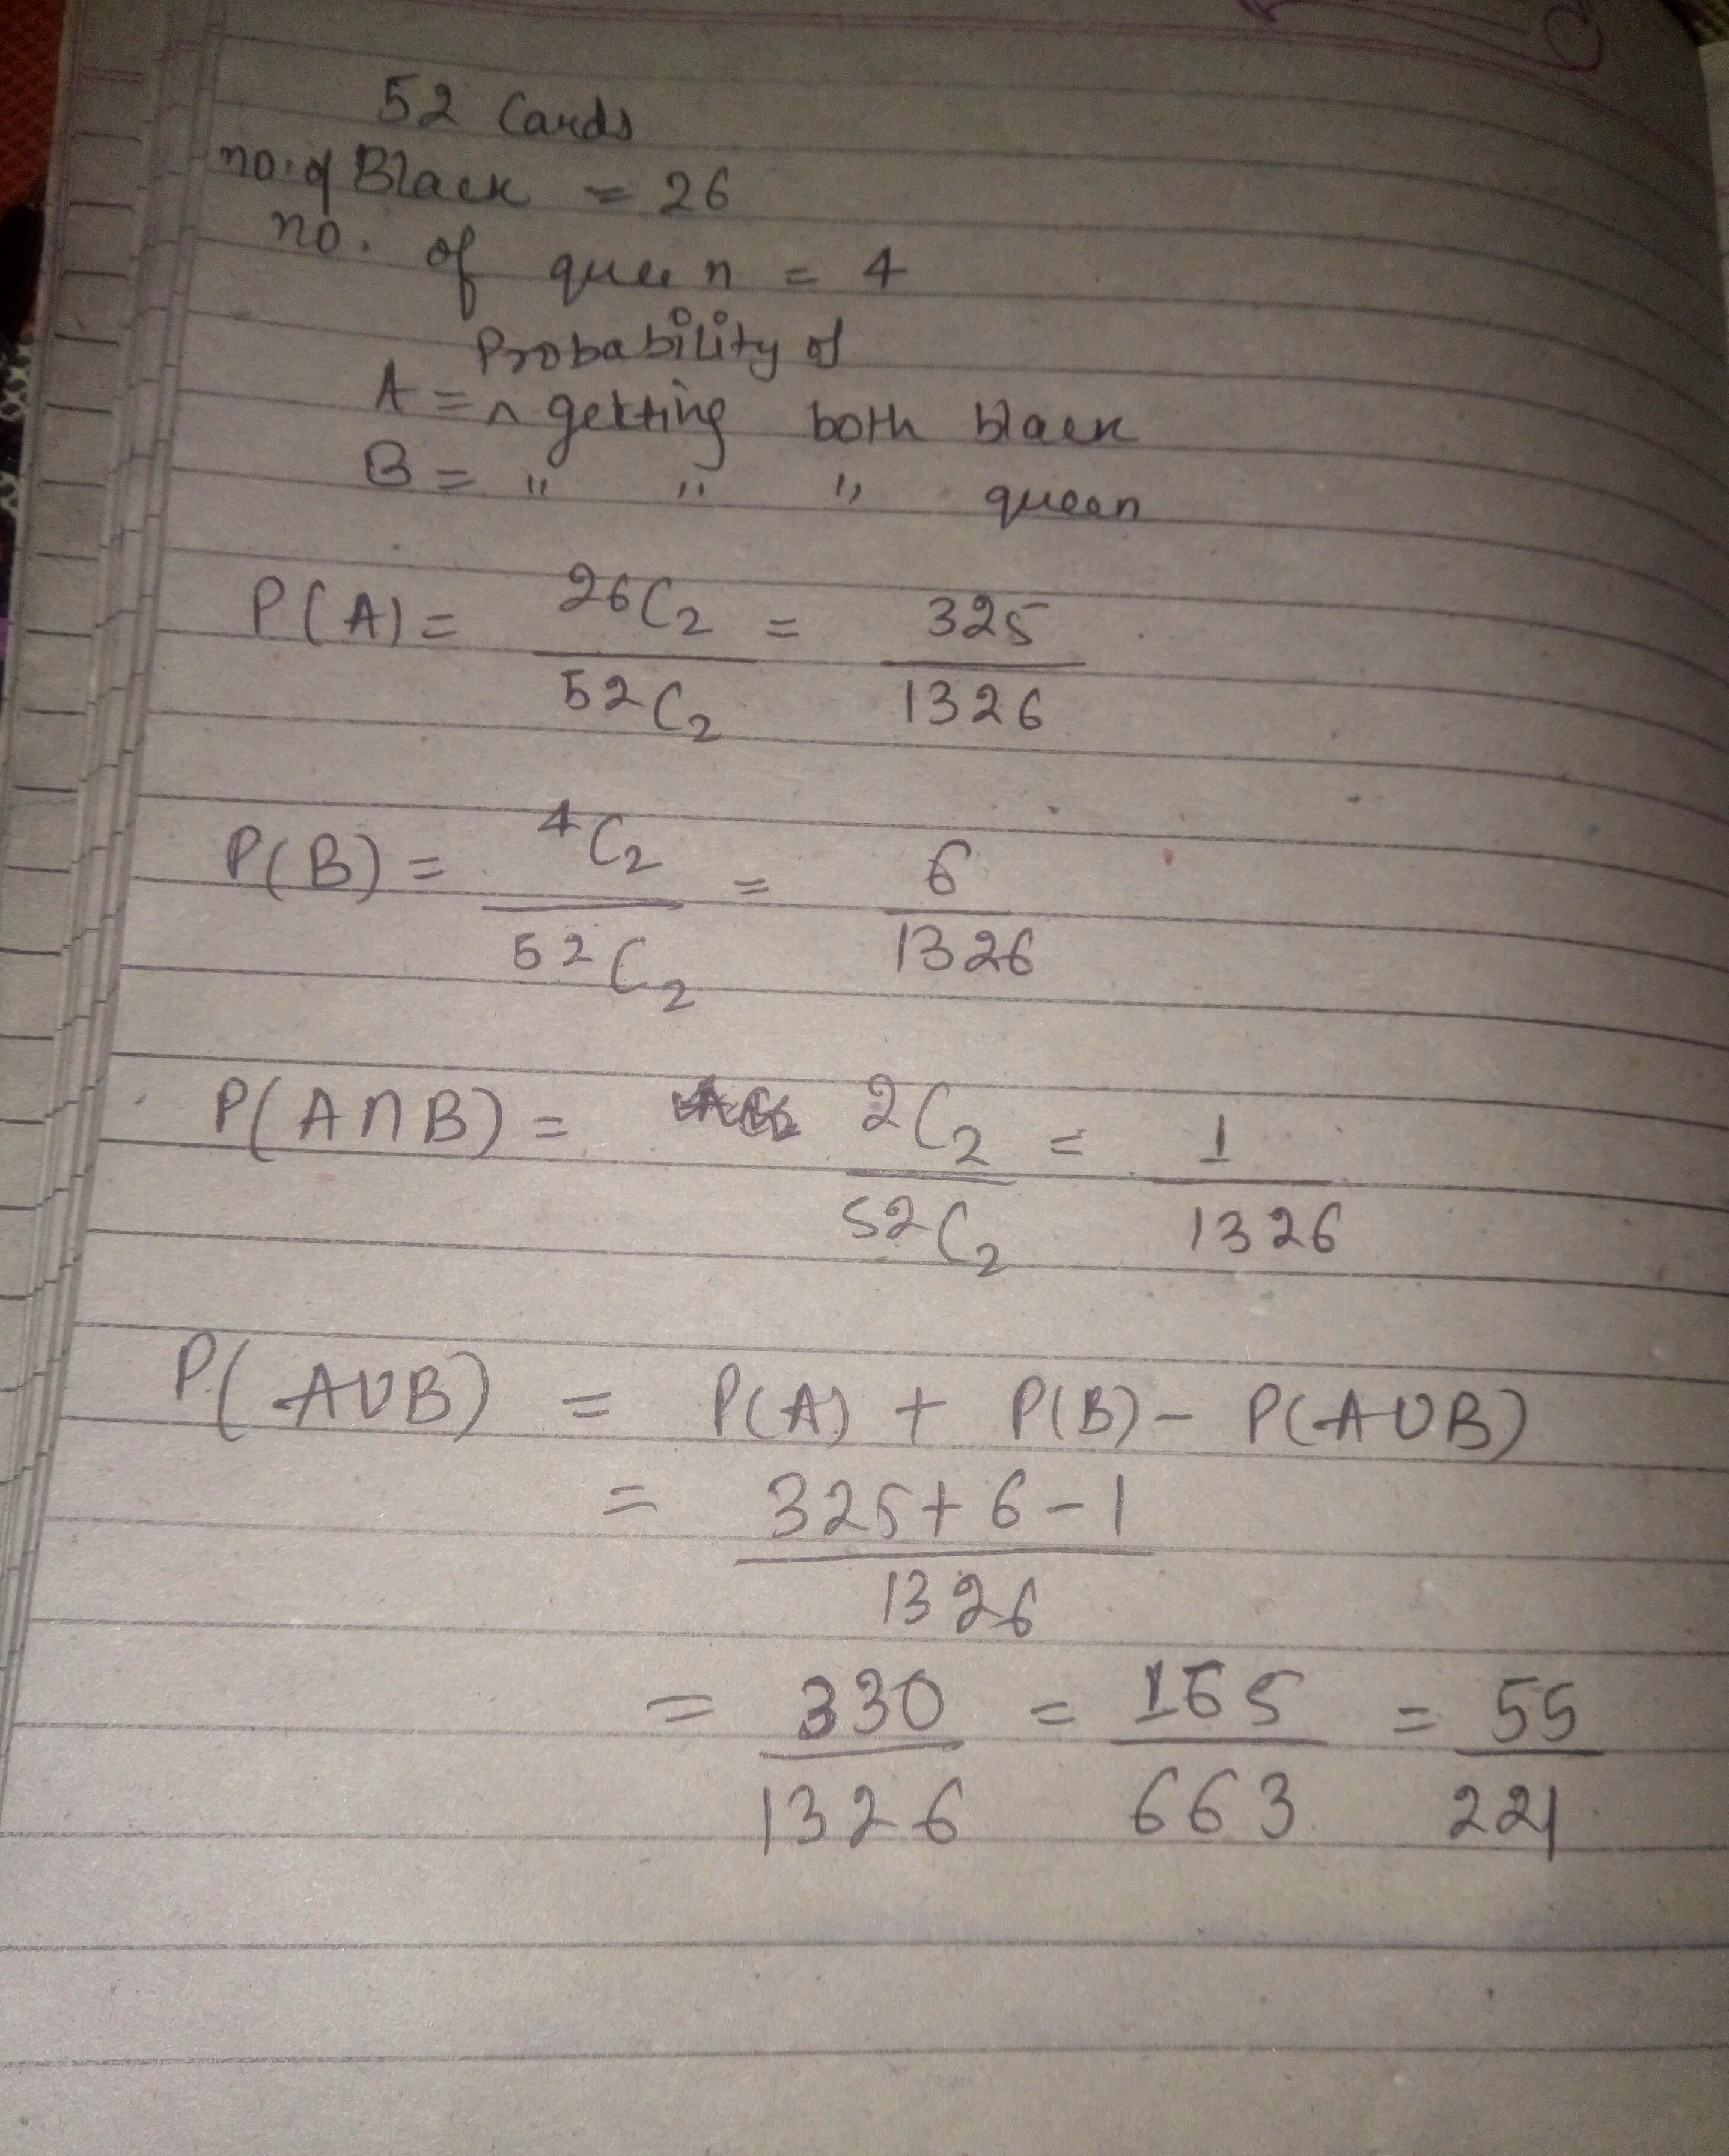 52 Cards
no. of Black = 26
no. of queen = 4
Probability of
A = ^ getting both black
B = " " " queen
P(A) = 26C2 / 52C2 = 325 / 1326
P(B) = 4C2 / 52C2 = 6 / 1326
P(A∩B) = 2C2 / 52C2 = 1 / 1326
P(A∪B) = P(A) + P(B) - P(A∪B)
= 325+6-1 / 1326
= 330 / 1326 = 165 / 663 = 55 / 221